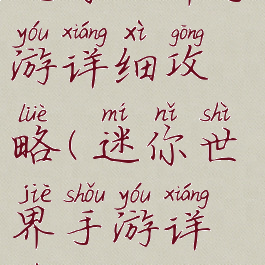 yóu xiáng xì gōng
游详细攻
lüè mí nǐ shì
略(迷你世
jiè shǒu yóu xiáng
界手游详